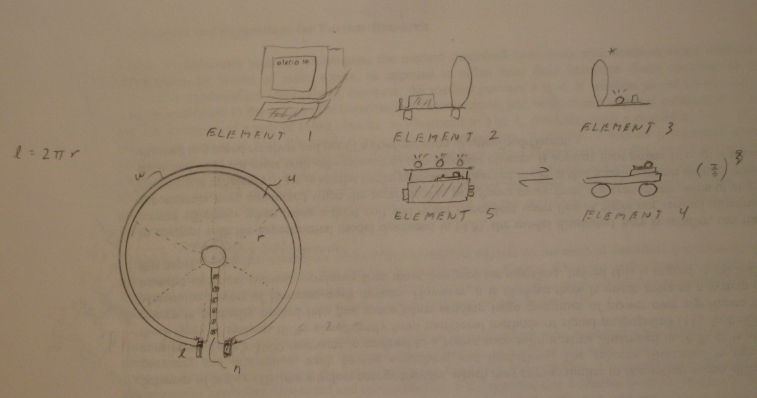 ELEMENT 1
ELEMENT 2
ELEMENT 3
l = 2 π r
ELEMENT 5
ELEMENT 4
w
u
r
l
n